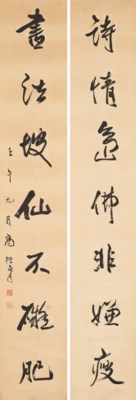 詩情島佛非嫌瘦
書法坡仙不礙肥
壬午九月